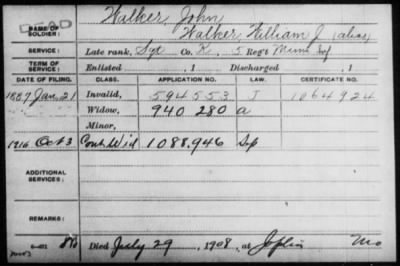 DEAD
Walker, John
NAME OF SOLDIER: Walker William J (alias)
SERVICE: Late rank, Sgt Co. K, 5 Reg't Minn Inf
TERM OF SERVICE: Enlisted , 1 Discharged , 1
DATE OF FILING. CLASS. APPLICATION NO. LAW. CERTIFICATE NO.
1887 Jan. 21 Invalid, 594553 J 1064924
Widow, 940280 a
Minor,
1916 Oct 3 Cont. Wid 1088,946
ADDITIONAL SERVICES:
REMARKS:
Died July 29, 1908, at Joplin Mo